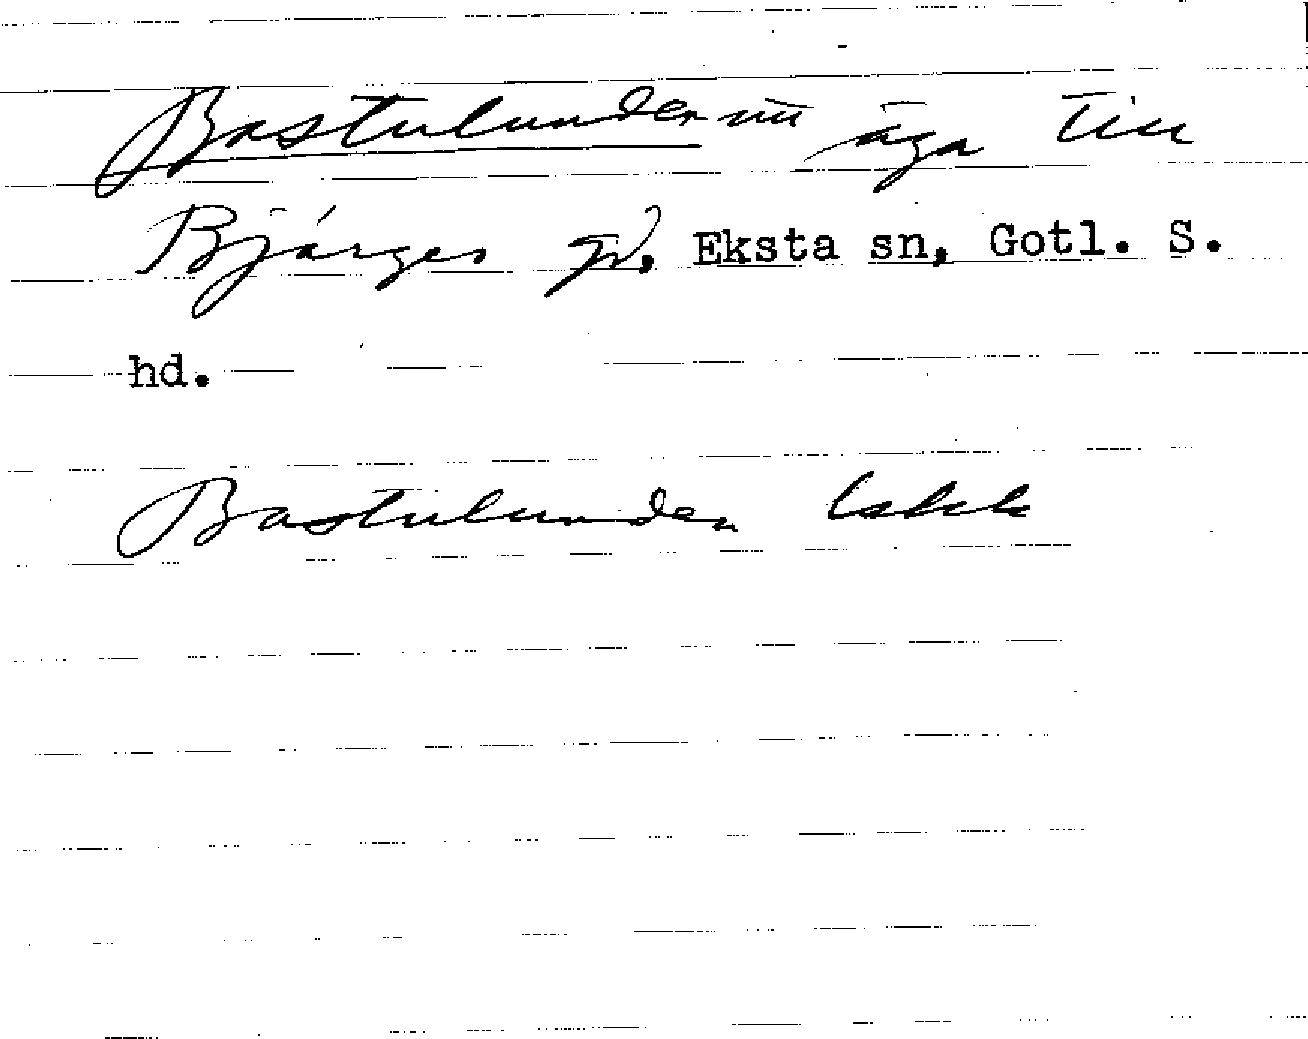 Bastulunden nu äga till
Bjärges gd. Eksta sn, Gotl. S.
hd.
Bastulunden